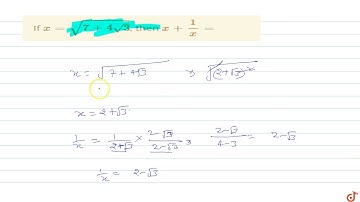 If x = √(7 + 4√3), then x + 1/x =
x = √(7 + 4√3) ⇒ √(2+√3)²
x = 2+√3
1/x = 1/(2+√3) × (2-√3)/(2-√3) ⇒ (2-√3)/(4-3) = 2-√3
1/x = 2-√3